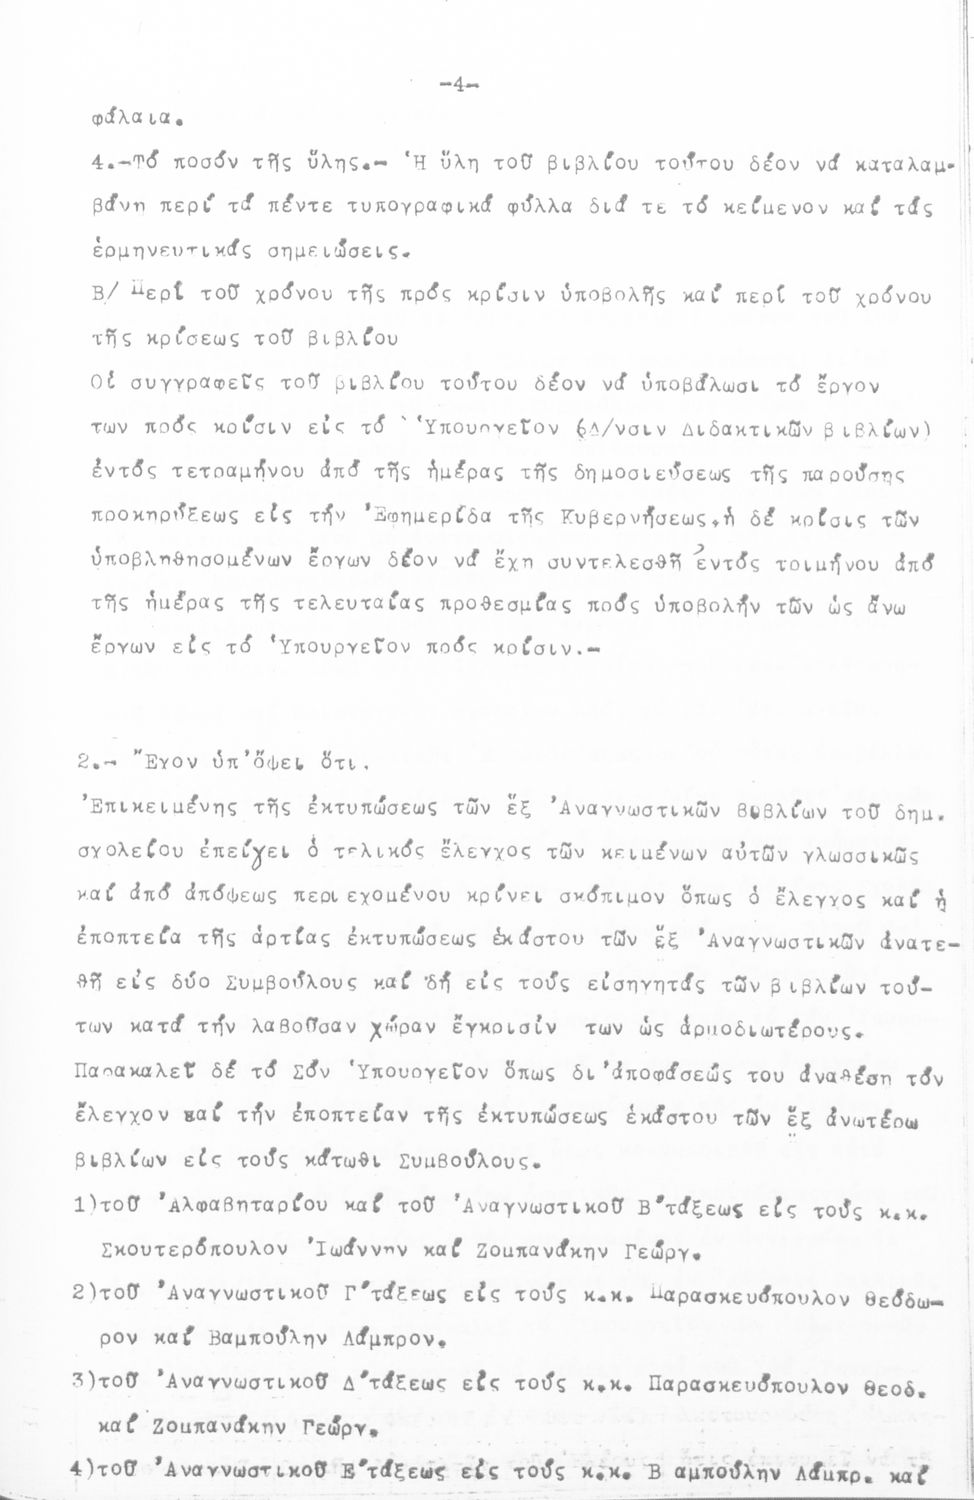 -4-
φάλαια.
4.-Τό ποσόν τῆς ὕλης.- Ἡ ὕλη τοῦ βιβλίου τούτου δέον νά καταλαμ-
βάνη περί τά πέντε τυπογραφικά φύλλα διά τε τό κείμενον καί τάς
ἑρμηνευτικάς σημειώσεις.
Β/ Περί τοῦ χρόνου τῆς πρός κρίσιν ὑποβολῆς καί περί τοῦ χρόνου
τῆς κρίσεως τοῦ βιβλίου
Οἱ συγγραφεῖς τοῦ βιβλίου τούτου δέον νά ὑποβάλωσι τό ἔργον
των πρός κρίσιν εἰς τό Ὑπουργεῖον (Δ/νσιν Διδακτικῶν βιβλίων)
ἐντός τετραμήνου ἀπό τῆς ἡμέρας τῆς δημοσιεύσεως τῆς παρούσης
προκηρύξεως εἰς τήν Ἐφημερίδα τῆς Κυβερνήσεως, ἡ δέ κρίσις τῶν
ὑποβληθησομένων ἔργων δέον νά ἔχη συντελεσθῆ ἐντός τριμήνου ἀπό
τῆς ἡμέρας τῆς τελευταίας προθεσμίας πρός ὑποβολήν τῶν ὡς ἄνω
ἔργων εἰς τό Ὑπουργεῖον πρός κρίσιν.-
2.- Ἔχον ὑπ'ὄψει ὅτι.
Ἐπικειμένης τῆς ἐκτυπώσεως τῶν ἕξ Ἀναγνωστικῶν βιβλίων τοῦ δημ.
σχολείου ἐπείγει ὁ τελικός ἔλεγχος τῶν κειμένων αὐτῶν γλωσσικῶς
καί ἀπό ἀπόψεως περιεχομένου κρίνει σκόπιμον ὅπως ὁ ἔλεγχος καί ἡ
ἐποπτεία τῆς ἀρτίας ἐκτυπώσεως ἑκάστου τῶν ἕξ Ἀναγνωστικῶν ἀνατε-
θῆ εἰς δύο Συμβούλους καί δή εἰς τούς εἰσηγητάς τῶν βιβλίων τού-
των κατά τήν λαβοῦσαν χώραν ἔγκρισίν των ὡς ἁρμοδιωτέρους.
Παρακαλεῖ δέ τό Σόν Ὑπουργεῖον ὅπως δι'ἀποφάσεώς του ἀναθέση τόν
ἔλεγχον καί τήν ἐποπτείαν τῆς ἐκτυπώσεως ἑκάστου τῶν ἕξ ἀνωτέρω
βιβλίων εἰς τούς κάτωθι Συμβούλους.
1)τοῦ Ἀλφαβηταρίου καί τοῦ Ἀναγνωστικοῦ Β'τάξεως εἰς τούς κ.κ.
Σκουτερόπουλον Ἰωάννην καί Ζομπανάκην Γεώργ.
2)τοῦ Ἀναγνωστικοῦ Γ'τάξεως εἰς τούς κ.κ. Παρασκευόπουλον Θεόδω-
ρον καί Βαμπούλην Λάμπρον.
3)τοῦ Ἀναγνωστικοῦ Δ'τάξεως εἰς τούς κ.κ. Παρασκευόπουλον Θεοδ.
καί Ζομπανάκην Γεώργ.
4)τοῦ Ἀναγνωστικοῦ Ε'τάξεως εἰς τούς κ.κ. Βαμπούλην Λάμπρ. καί